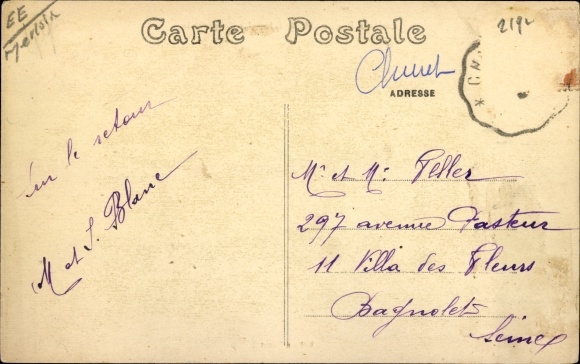 EE
219
Carte Postale
ADRESSE
Sur le retour
M et S. Blanc
Mr et Me Teller
297 avenue Pasteur
11 Villa des Fleurs
Bagnolet
Seine